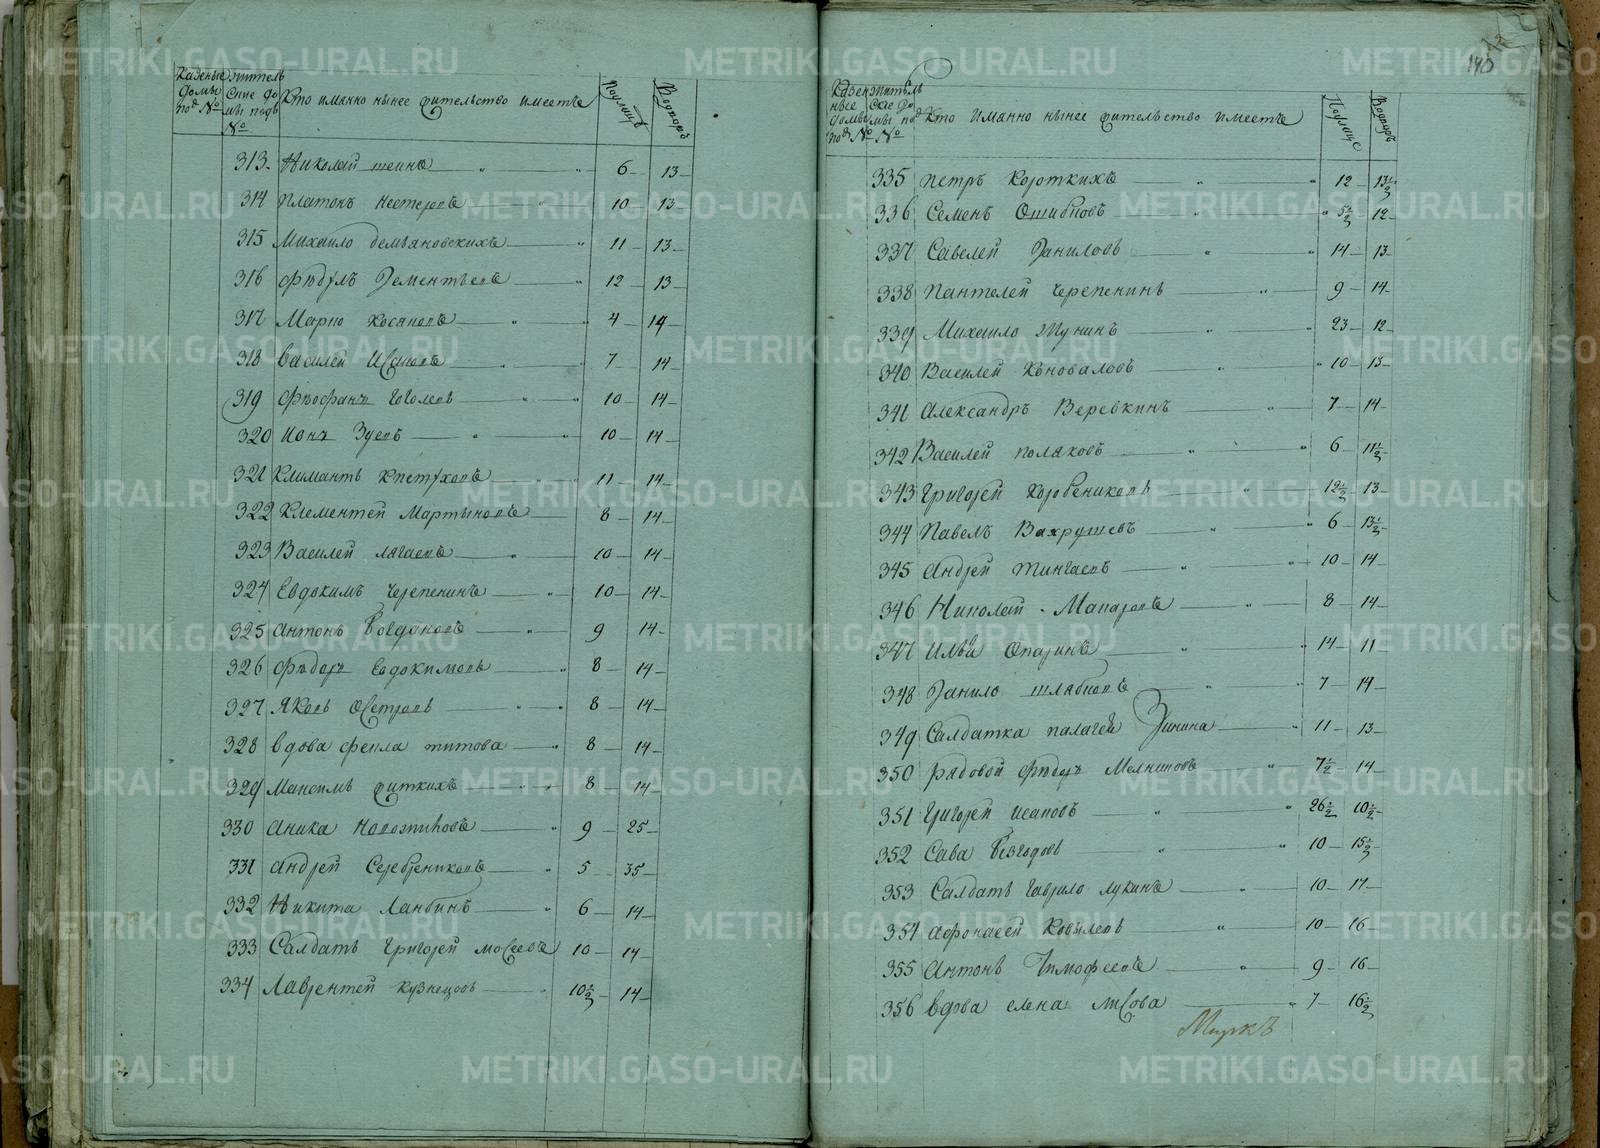 Казеные домы подъ №
жительские домы подъ №
Кто имянно нынее жительство имеетъ
Поулице
Водворъ
313. Николай 6 13
314 Платонъ Нестеровъ 10 13
315 Михаило демьяновскихъ 11 13
316 Фѣдулъ Дементьевъ 12 13
317 Марко Косяковъ 4 14
318 Василей Исаковъ 7 14
319 Фѣофанъ Гоголевъ 10 14
320 Ионъ Зуевъ 10 14
321 Климантъ 11 14
322 Клементей Мартыновъ 8 14
323 Василей лагаевъ 10 14
324 Евдокимъ Черепенинъ 10 14
325 Антонъ Богдановъ 9 14
326 Фѣдоръ Евдокимовъ 8 14
327 Яковъ Осетровъ 8 14
328 вдова феила титова 8 14
329 Максимъ житкихъ 8 14
330 Аника Новожиловъ 9 25
331 Андрей Серебрениковъ 5 35
332 Никита Ланбинъ 6 14
333 Салдатъ Григорей мосеевъ 10 14
334 Лаврентей кузнецовъ 10½ 14
140
Казенные домы подъ №
жительские домы подъ №
Кто имянно нынее жительство имеетъ
Поулице
Водворъ
335 петръ Короткихъ 12 13½
336 Семенъ Ошибковъ 5½ 12
337 Савелей Даниловъ 14 13
338 Пантелей Черепенинъ 9 14
339 Михаило Жунинъ 23 12
340 Василей Коноваловъ 10 13
341 Александръ Веревкинъ 7 14
342 Василей поляковъ 6 11½
343 Григорей Коровениковъ 12½ 13
344 Павелъ Вахрушевъ 6 13½
345 Андрей Тингаевъ 10 14
346 Николай Макаровъ 8 14
347 Илья Опаринъ 14 11
348 Данило шлябковъ 7 14
349 Салдатка палагея Зинина 11 13
350 рядовой Фѣдоръ Мелниковъ 7½ 14
351 Григорей исаковъ 26½ 10½
352 Сава Безгодовъ 10 15½
353 Салдатъ гаврило лукинъ 10 17
354 афонасей Ковылевъ 10 16
355 Антонъ Тимофеевъ 9 16
356 вдова елена лисова 7 16½